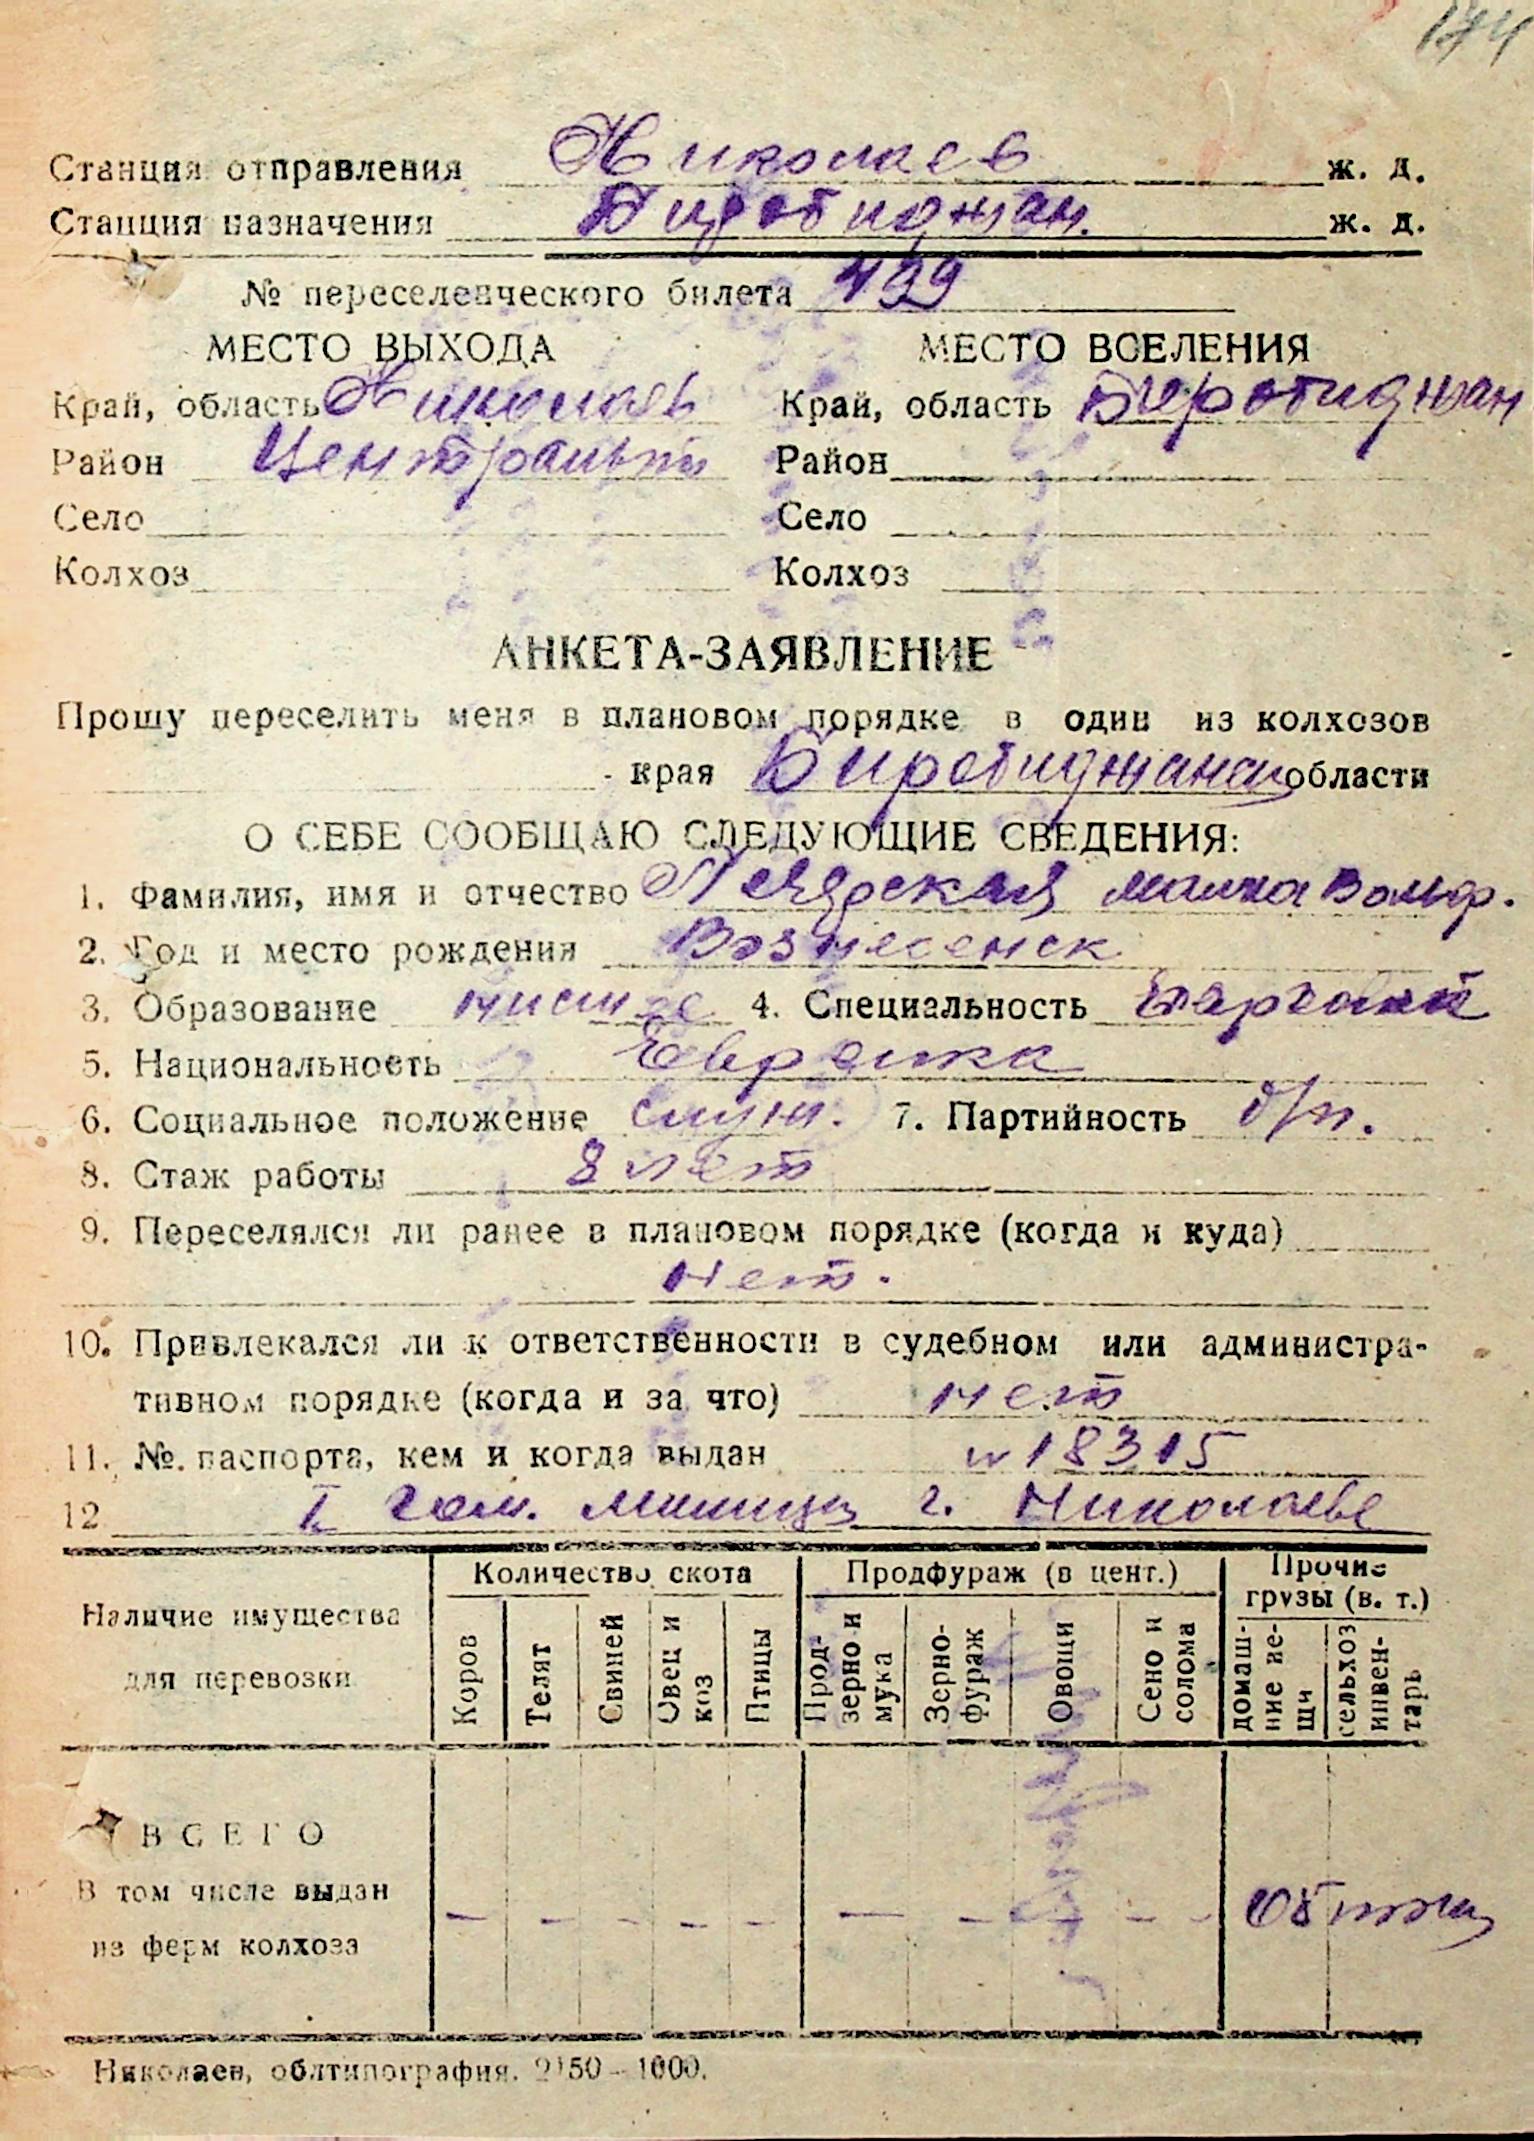 174
Станция отправления Николаев ж. д.
Станция назначения Биробиджан. ж. д.
№ переселенческого билета 499
МЕСТО ВЫХОДА МЕСТО ВСЕЛЕНИЯ
Край, область Николаев Край, область Биробиджан
Район Центральный Район
Село Село
Колхоз Колхоз
АНКЕТА-ЗАЯВЛЕНИЕ
Прошу переселить меня в плановом порядке в один из колхозов
края Биробиджанск области
О СЕБЕ СООБЩАЮ СЛЕДУЮЩИЕ СВЕДЕНИЯ:
1. Фамилия, имя и отчество Малка Вольф.
2. Год и место рождения Вознесенск
3. Образование низшее 4. Специальность
5. Национальность Еврейка
6. Социальное положение служ. 7. Партийность б/п.
8. Стаж работы 8 лет
9. Переселялся ли ранее в плановом порядке (когда и куда)
нет.
10. Привлекался ли к ответственности в судебном или администра-
тивном порядке (когда и за что) нет
11. №. паспорта, кем и когда выдан № 18315
12 I милиции г. Николаеве
Наличие имущества для перевозки
Количество скота Продфураж (в цент.) Прочие грузы (в. т.)
Коров Телят Свиней Овец и коз Птицы Прод-зерно и мука Зерно-фураж Овощи Сено и солома домаш-ние ве-щи сельхоз инвен-тарь
ВСЕГО
В том числе выдан
из ферм колхоза — — — — — — — — —
Николаев, облтипография. 2150—1000.